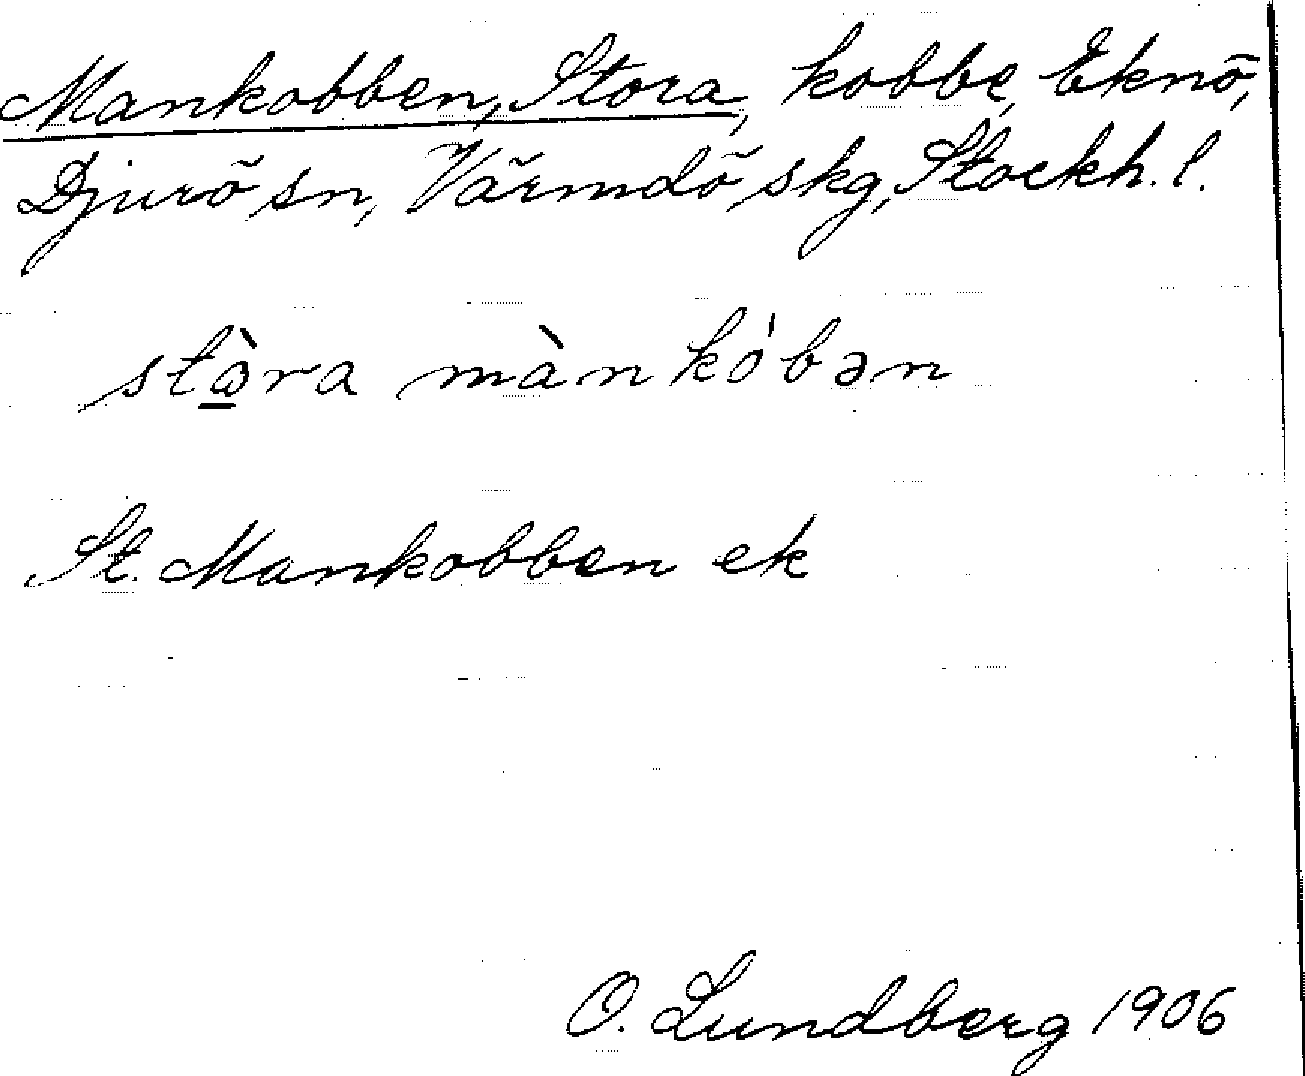 Mankobben, Stora, kobbe, Eknö,
Djurö sn, Värmdö skg, Stockh. l.
stɷ̀ra màn kó'bən
St. Mankobben ek
O. Lundberg 1906